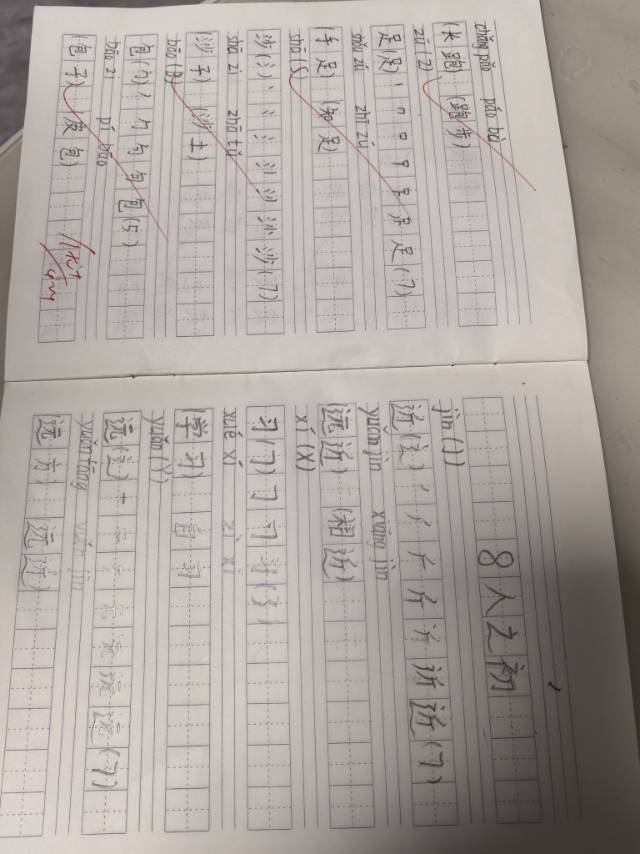 chǎng pǎo pǎo bù
(长跑) (跑步)
zú (Z)
足(足)丨 口 口 足 足(7)
shǒu zú zhī zú
(手足) (知足)
shā (S)
沙(氵)丶 丶 氵 沙 沙(7)
shā zi shā tǔ
沙子 (沙土)
bāo (B)
包(勹)丿 勹 勹 包(5)
bāo zi pí bāo
(包子) 皮包)
8人之初
jìn (J)
近(辶)丿 斤 近 近(7)
yuǎn jìn xiāng jìn
(远近) (相近)
xí (X)
习(㇆)㇆ 习(3)
xué xí zì xí
(学习) 自习
yuǎn (Y)
远(辶)一 二 元 远(7)
yuǎn fāng yuǎn jìn
(远方) 远近)